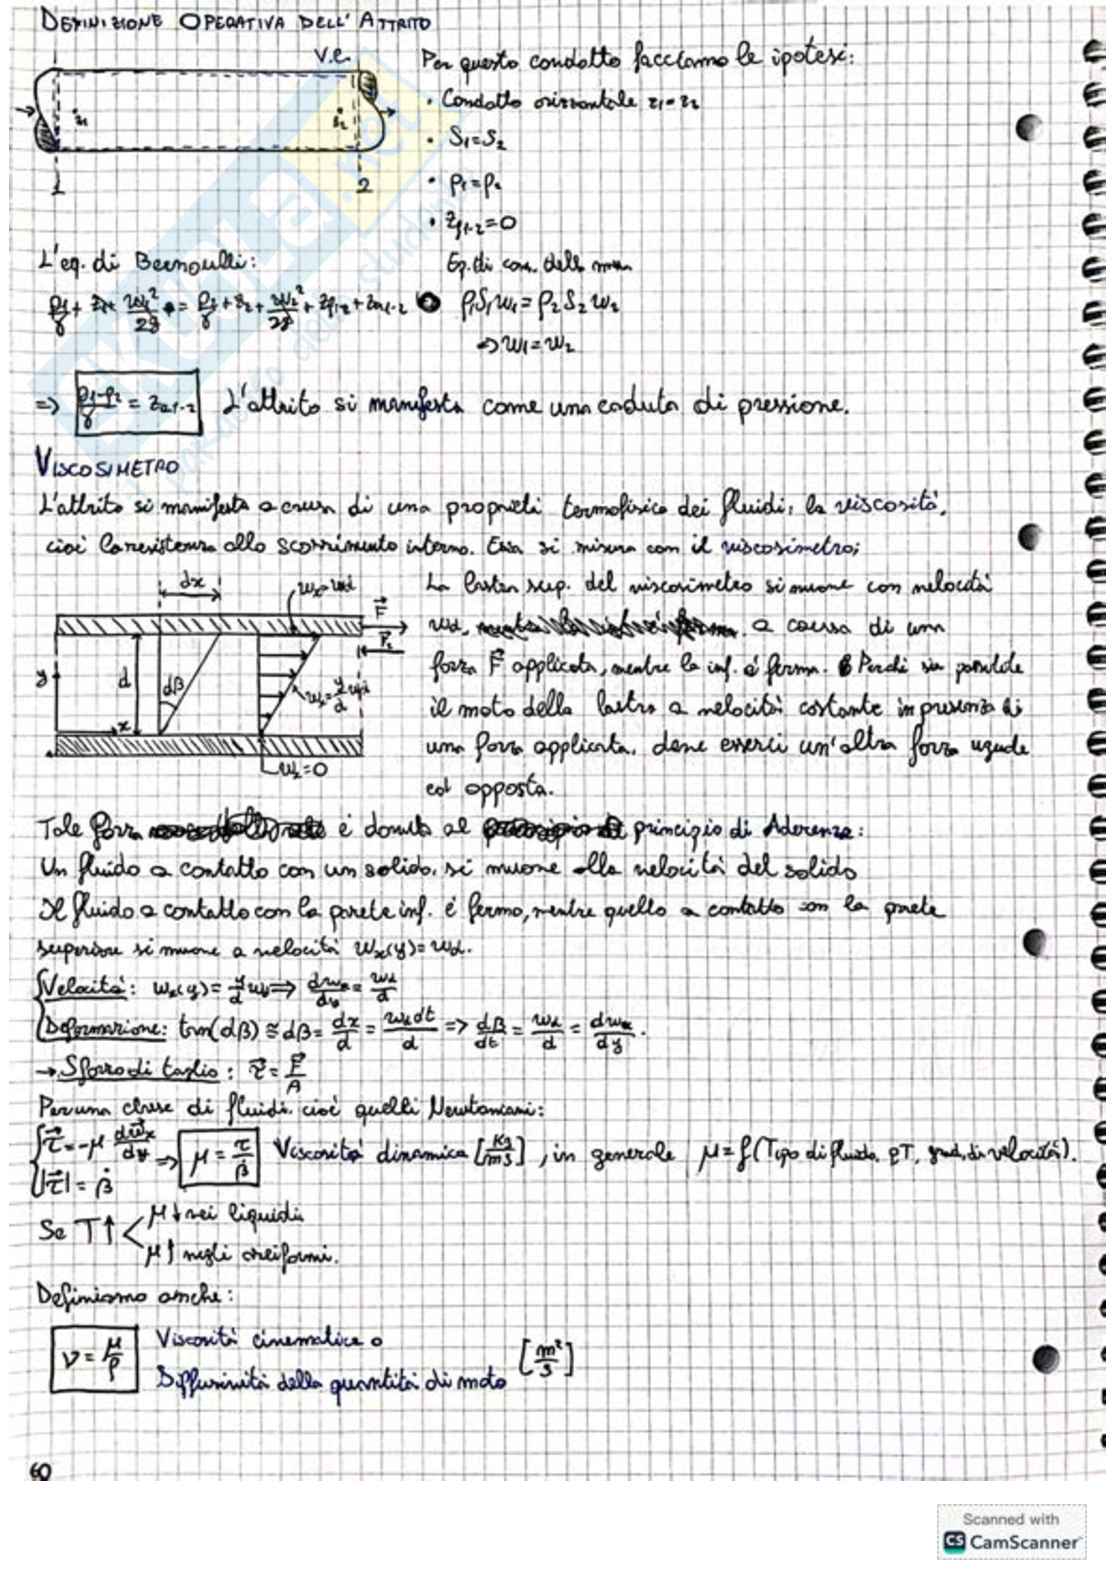 DEFINIZIONE OPERATIVA DELL'ATTRITO
V.C.
Per questo condotto facciamo le ipotesi:
z₁ z₂
1 2
• Condotto orizzontale z₁=z₂
• S₁=S₂
• ρ₁=ρ₂
• Zp₁₋₂=0
L'eq. di Bernoulli:
Eq. di con. della massa
p₁/γ + z₁ + w₁²/2g = p₂/γ + z₂ + w₂²/2g + Zp₁₋₂ + Za₁₋₂
ρ₁S₁w₁=ρ₂S₂w₂
⇒w₁=w₂
⇒ (p₁-p₂)/γ = Za₁₋₂ L'attrito si manifesta come una caduta di pressione.
VISCOSIMETRO
L'attrito si manifesta a causa di una proprietà termofisica dei fluidi, la viscosità,
cioè la resistenza allo scorrimento interno. Essa si misura con il viscosimetro;
dx
F
La lastra sup. del viscosimetro si muove con velocità
wd, a causa di una
y d dβ wx=y/d wd x
forza F applicata, mentre la inf. è ferma. Perché sia possibile
il moto della lastra a velocità costante in presenza di
una forza applicata, deve esserci un'altra forza uguale
wx=0
ed opposta.
Tale forza è dovuta al principio di Aderenza:
Un fluido a contatto con un solido, si muove alla velocità del solido
Il fluido a contatto con la parete inf. è fermo, mentre quello a contatto con la parete
superiore si muove a velocità wx(y)=wd.
Velocità: wx(y)= y/d wd ⇒ dwx/dy = wd/d
Deformazione: tan(dβ) ≅ dβ = dx/d = wd dt/d => dβ/dt = wd/d = dwx/dy.
→ Sforzo di taglio: τ = F/A
Per una classe di fluidi, cioè quelli Newtoniani:
τ=-μ dwx/dy
⇒ μ = τ/β̇ Viscosità dinamica [kg/ms], in generale μ=f(Tipo di fluido, p,T, grad. di velocità).
|τ| = β̇
Se T↑
μ↓ nei liquidi
μ↑ negli aeriformi.
Definiamo anche:
ν = μ/ρ
Viscosità cinematica o
Diffusività della quantità di moto
[m²/s]
60
Scanned with
CS CamScanner